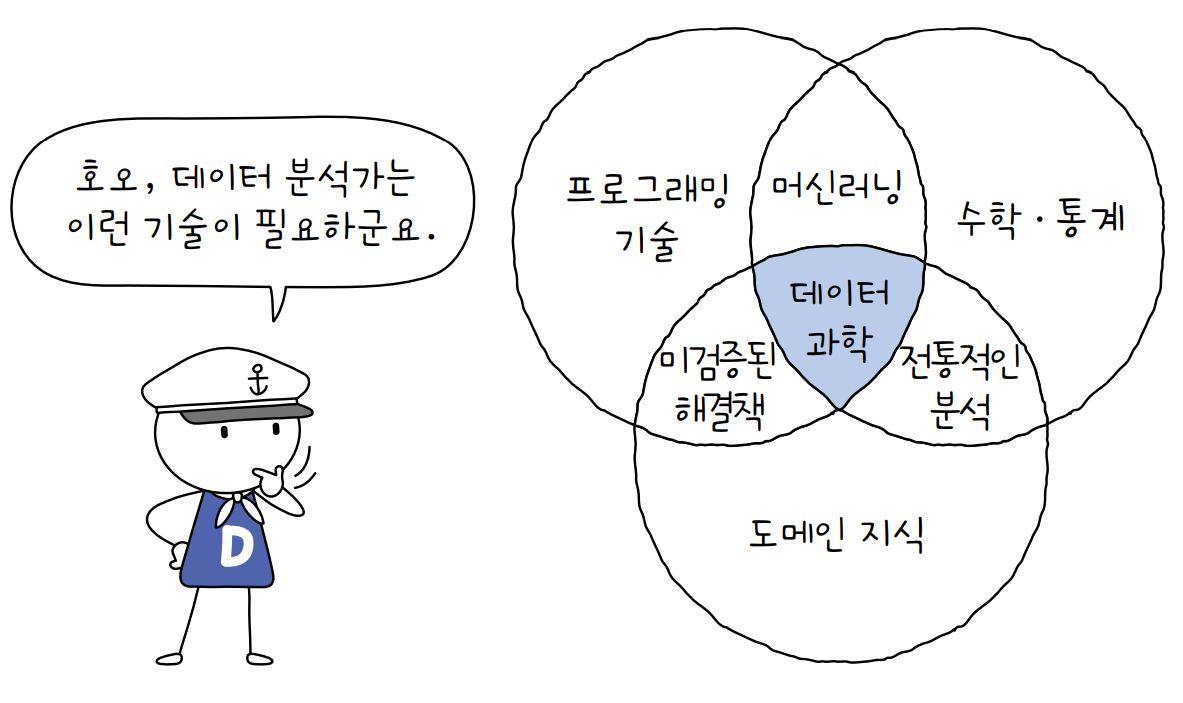 호오, 데이터 분석가는
이런 기술이 필요하군요.
D
프로그래밍
기술
머신러닝
수학·통계
데이터
과학
미검증된
해결책
전통적인
분석
도메인 지식